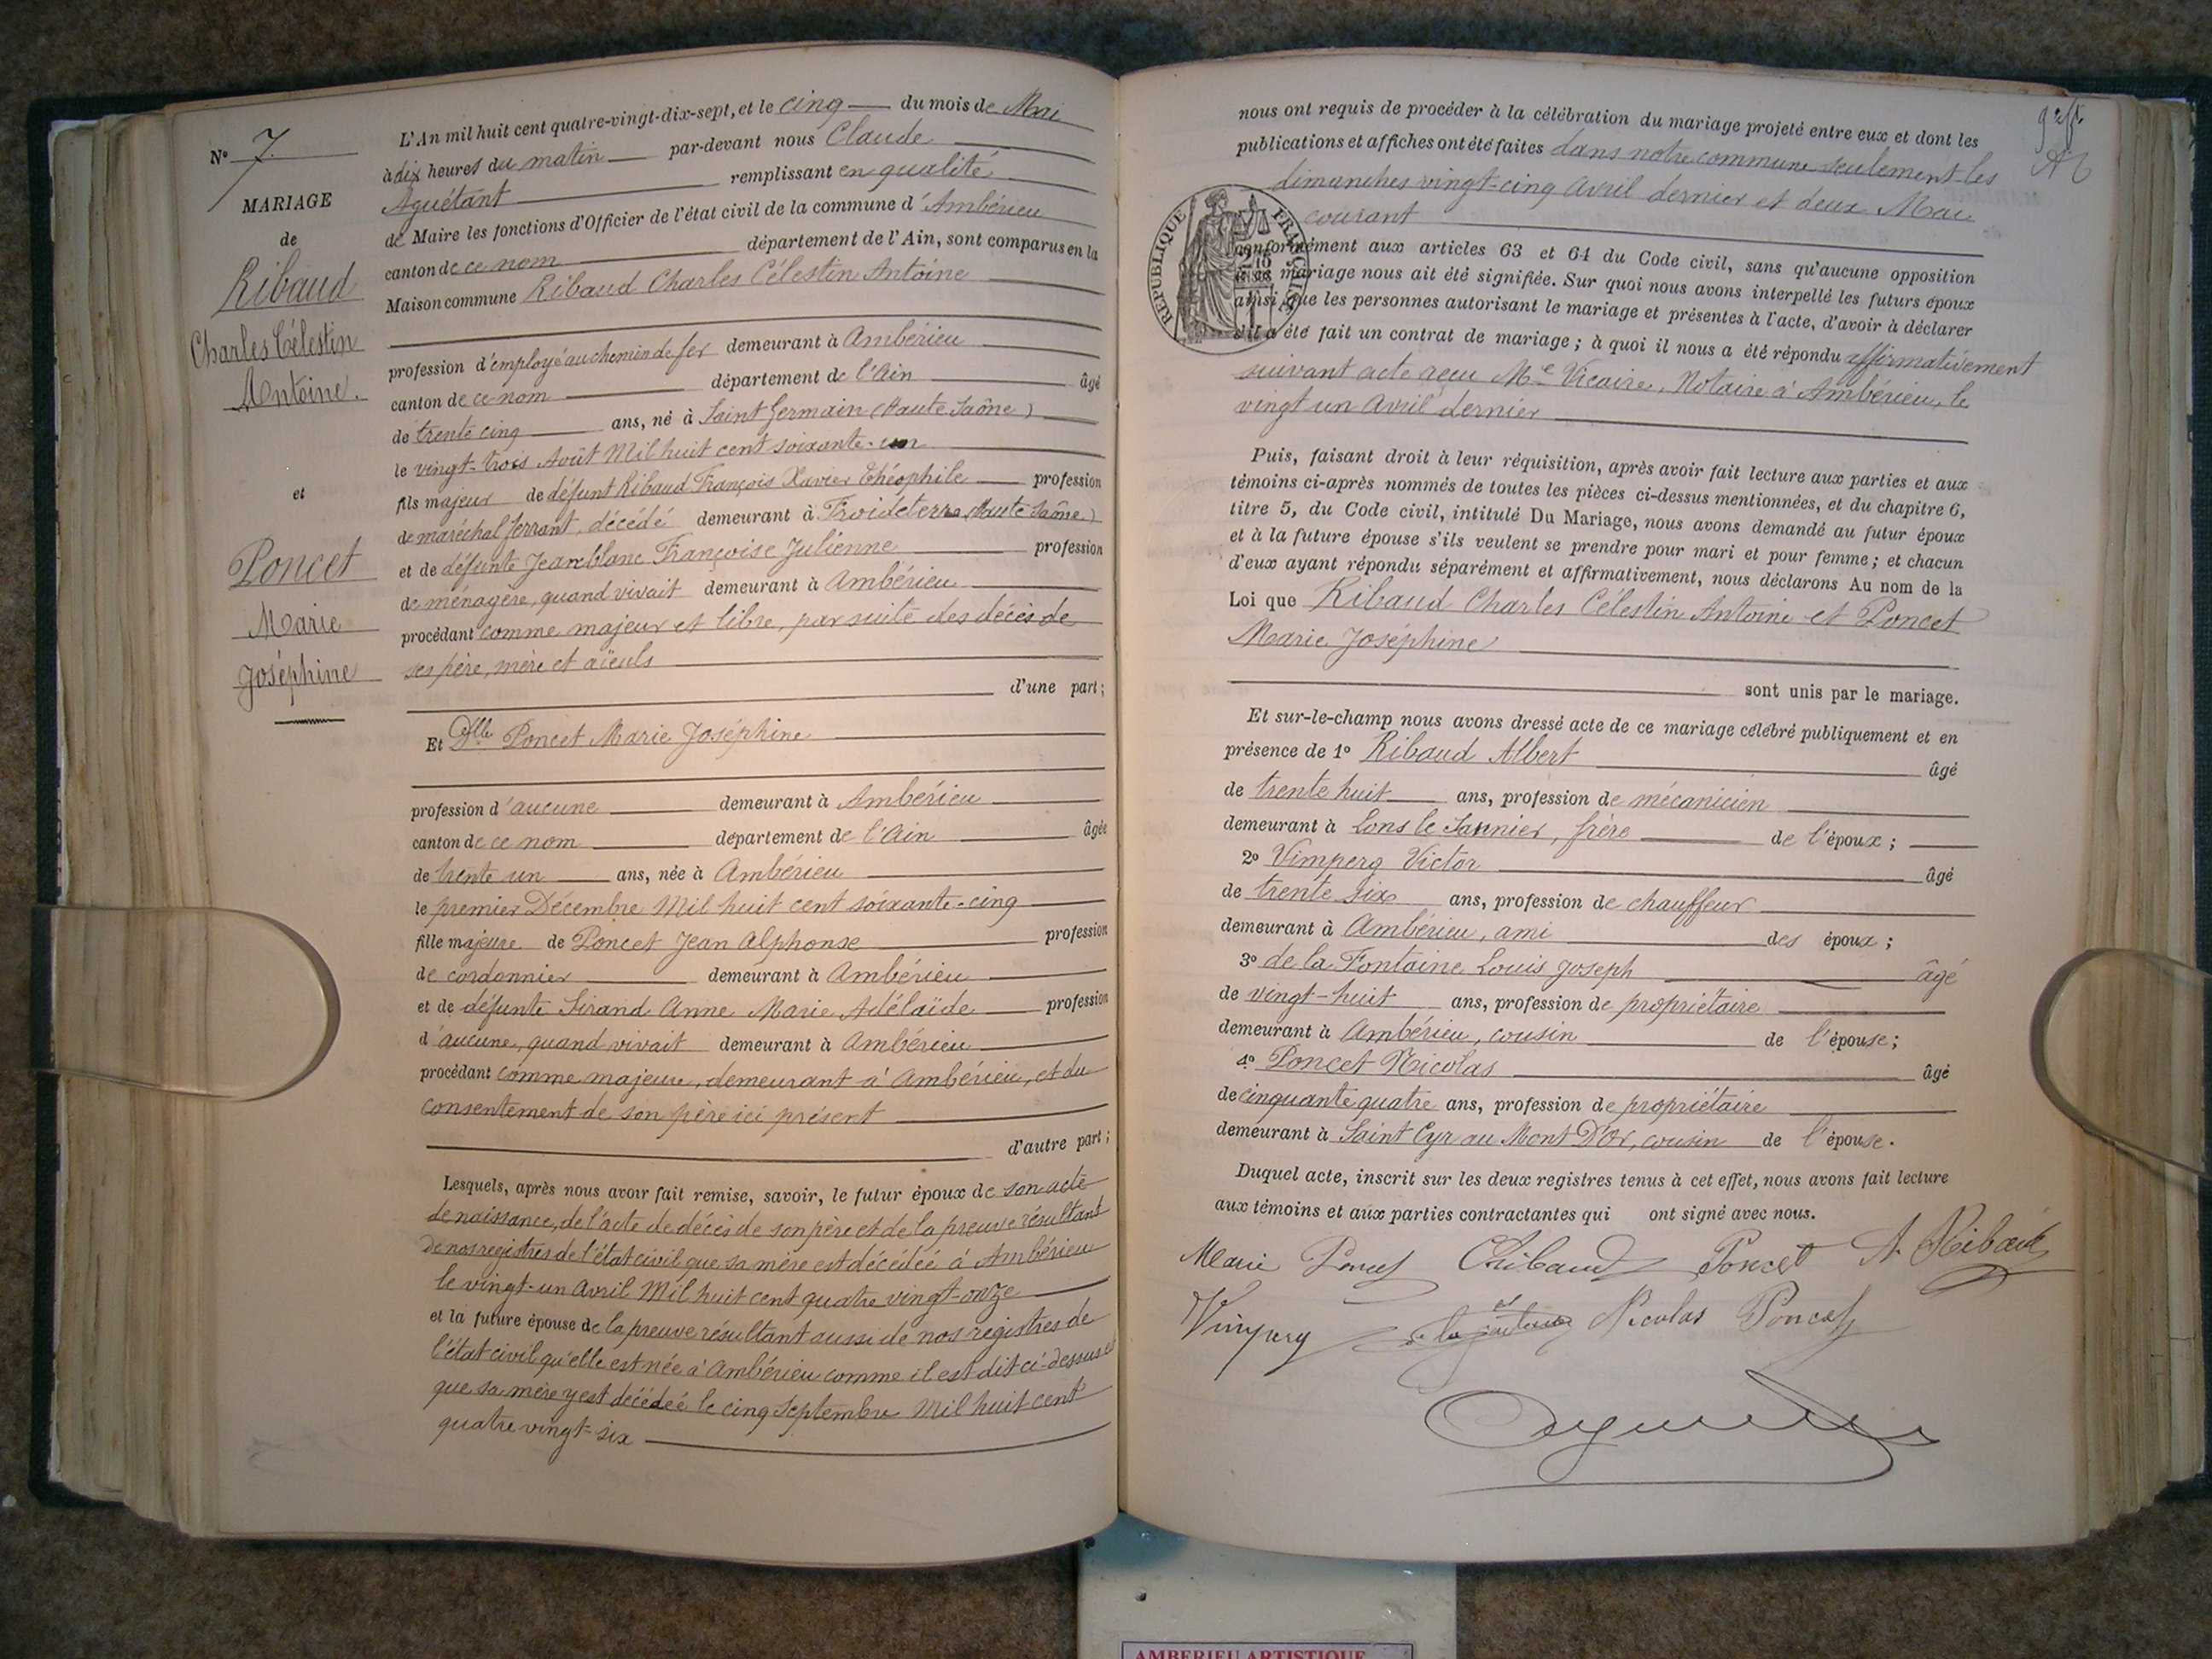 N° 7.
MARIAGE
de
Ribaud
Charles Célestin
Antoine.
et
Poncet
Marie
Joséphine
L'An mil huit cent quatre-vingt-dix-sept, et le cinq du mois de Mai
à dix heures du matin par-devant nous Claude
Aguétant remplissant en qualité
de Maire les fonctions d'Officier de l'état civil de la commune d'Ambérieu
canton de ce nom département de l'Ain, sont comparus en la
Maison commune Ribaud Charles Célestin Antoine
profession d'employé au chemin de fer demeurant à Ambérieu
canton de ce nom département de l'Ain âgé
de trente cinq ans, né à Saint Germain (Haute Saône)
le vingt-trois Août Mil huit cent soixante-un
fils majeur de défunt Ribaud François Xavier Théophile profession
de maréchal ferrant, décédé demeurant à Froideterre (Haute Saône)
et de défunte Jeanblanc Françoise Julienne profession
de ménagère, quand vivait demeurant à Ambérieu
procédant comme majeur et libre, par suite des décès de
ses père, mère et aïeuls
d'une part;
Et Dlle Poncet Marie Joséphine
profession d'aucune demeurant à Ambérieu
canton de ce nom département de l'Ain âgée
de trente un ans, née à Ambérieu
le premier Décembre Mil huit cent soixante-cinq
fille majeure de Poncet Jean Alphonse profession
de cordonnier demeurant à Ambérieu
et de défunte Sirand Anne Marie Adélaïde profession
d'aucune, quand vivait demeurant à Ambérieu
procédant comme majeure, demeurant à Ambérieu, et du
consentement de son père ici présent
d'autre part;
Lesquels, après nous avoir fait remise, savoir, le futur époux de son acte
de naissance, de l'acte de décès de son père et de la preuve résultant
de nos registres de l'état civil que sa mère est décédée à Ambérieu
le vingt-un Avril Mil huit cent quatre vingt-onze
et la future épouse de la preuve résultant aussi de nos registres de
l'état civil qu'elle est née à Ambérieu comme il est dit ci-dessus et
que sa mère y est décédée le cinq Septembre Mil huit cent
quatre vingt-six
nous ont requis de procéder à la célébration du mariage projeté entre eux et dont les
publications et affiches ont été faites dans notre commune seulement les
dimanches vingt-cinq Avril dernier et deux Mai
courant
RÉPUBLIQUE FRANÇAISE
conformément aux articles 63 et 64 du Code civil, sans qu'aucune opposition
à ce mariage nous ait été signifiée. Sur quoi nous avons interpellé les futurs époux
ainsi que les personnes autorisant le mariage et présentes à l'acte, d'avoir à déclarer
s'il a été fait un contrat de mariage; à quoi il nous a été répondu affirmativement
suivant acte reçu Me Vicaire, Notaire à Ambérieu, le
vingt un Avril dernier
Puis, faisant droit à leur réquisition, après avoir fait lecture aux parties et aux
témoins ci-après nommés de toutes les pièces ci-dessus mentionnées, et du chapitre 6,
titre 5, du Code civil, intitulé Du Mariage, nous avons demandé au futur époux
et à la future épouse s'ils veulent se prendre pour mari et pour femme; et chacun
d'eux ayant répondu séparément et affirmativement, nous déclarons Au nom de la
Loi que Ribaud Charles Célestin Antoine et Poncet
Marie Joséphine
sont unis par le mariage.
Et sur-le-champ nous avons dressé acte de ce mariage célébré publiquement et en
présence de 1° Ribaud Albert âgé
de trente huit ans, profession de mécanicien
demeurant à Lons le Saunier, frère de l'époux;
2° Vimperg Victor âgé
de trente six ans, profession de chauffeur
demeurant à Ambérieu, ami des époux;
3° de la Fontaine Louis Joseph âgé
de vingt-huit ans, profession de propriétaire
demeurant à Ambérieu, cousin de l'épouse;
4° Poncet Nicolas âgé
de cinquante quatre ans, profession de propriétaire
demeurant à Saint Cyr au Mont D'Or, cousin de l'épouse.
Duquel acte, inscrit sur les deux registres tenus à cet effet, nous avons fait lecture
aux témoins et aux parties contractantes qui ont signé avec nous.
Marie Poncet CRibaud Poncet A. Ribaud
Vimperg de la fontaine Nicolas Poncet
AMBERIEU ARTISTIQUE